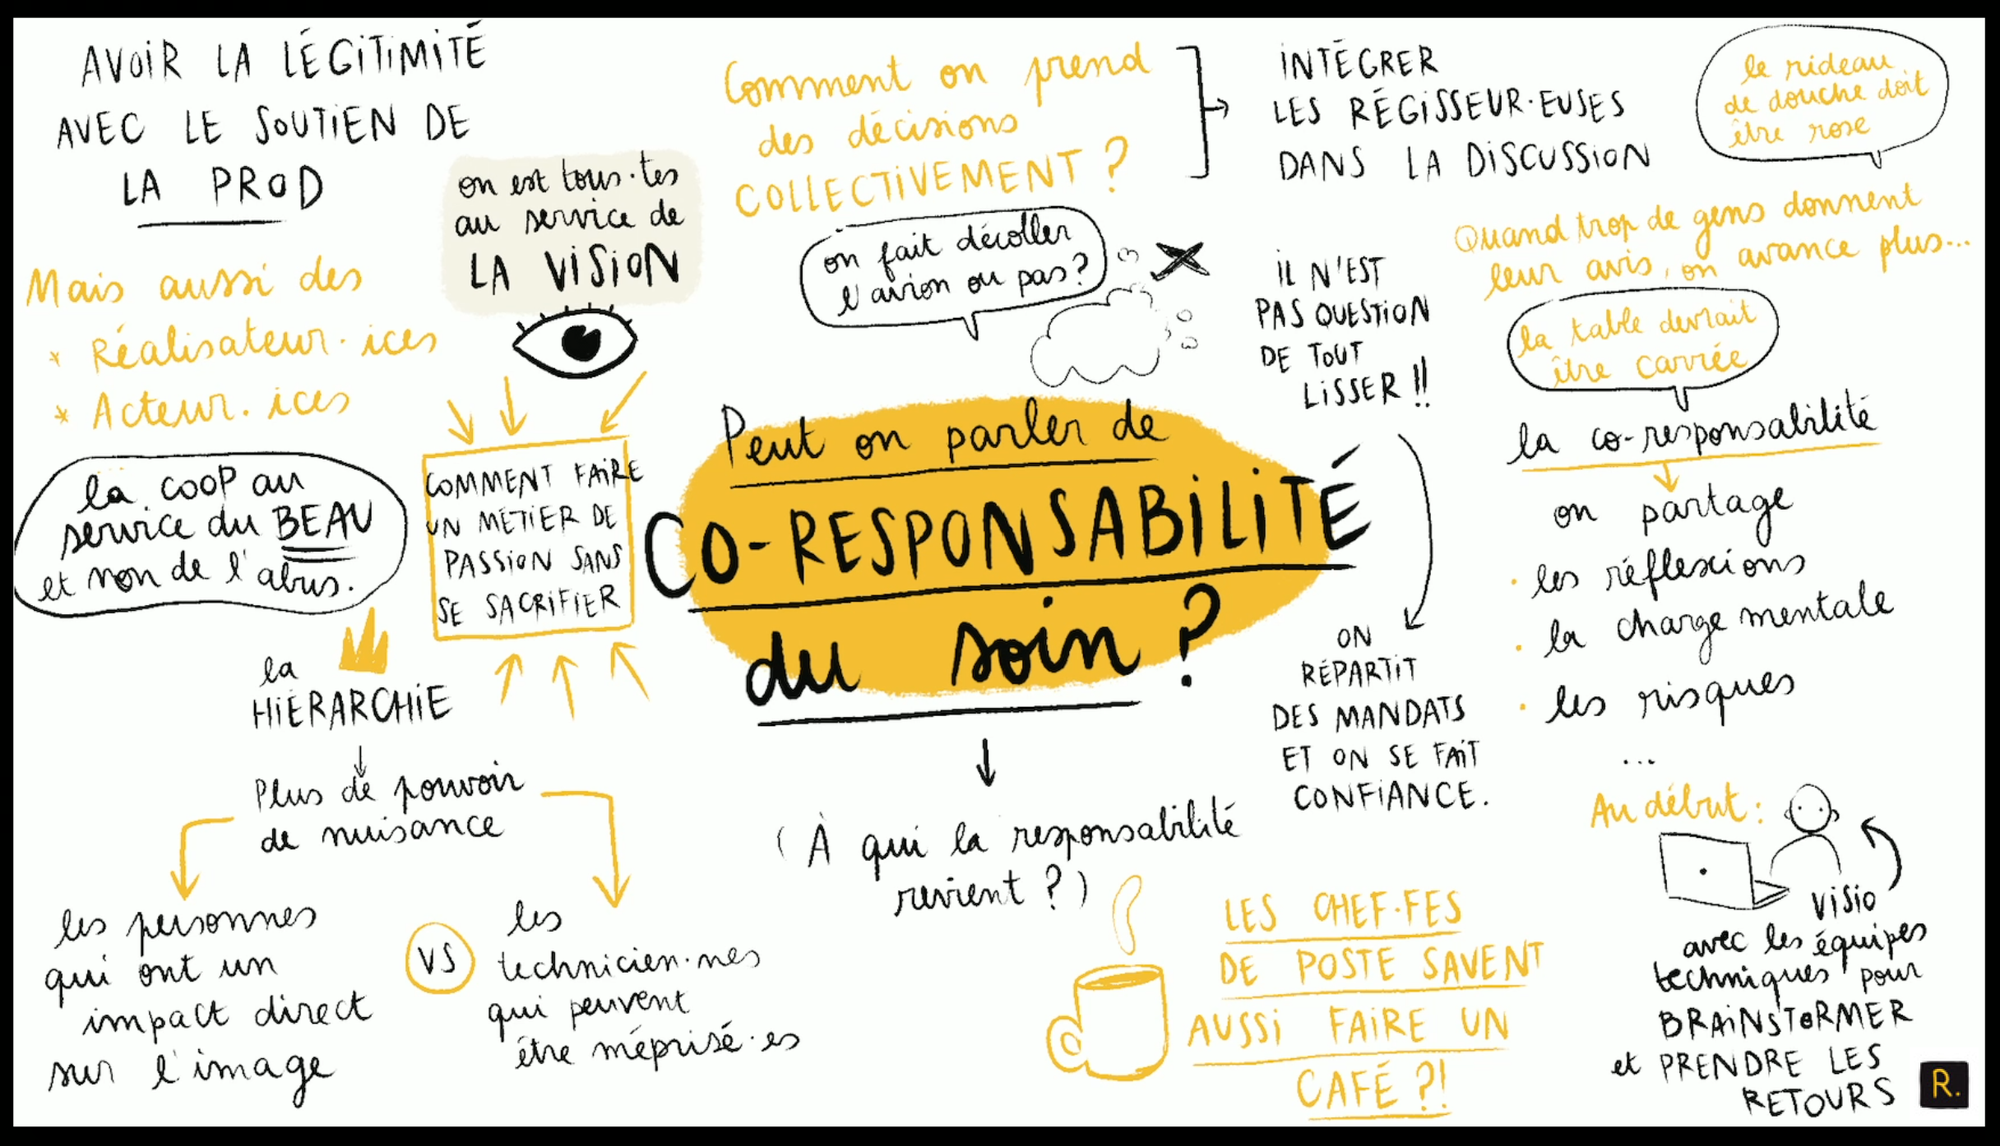 AVOIR LA LÉGITIMITÉ
AVEC LE SOUTIEN DE
LA PROD
Mais aussi des
* Réalisateur·ices
* Acteur.ices
on est tous·tes
au service de
LA VISION
COMMENT FAIRE
UN MÉTIER DE
PASSION SANS
SE SACRIFIER
la COOP au
service du BEAU
et non de l'abus.
la
HIÉRARCHIE
Plus de pouvoir
de nuisance
les personnes
qui ont un
impact direct
sur l'image
VS
les
technicien·nes
qui peuvent
être méprisé·es
Comment on prend
des décisions
COLLECTIVEMENT ?
INTÉGRER
LES RÉGISSEUR·EUSES
DANS LA DISCUSSION
on fait décoller
l'avion ou pas?
Peut on parler de
CO-RESPONSABILITÉ
du soin ?
(À qui la responsabilité
revient ?)
IL N'EST
PAS QUESTION
DE TOUT
LISSER !!
ON
RÉPARTIT
DES MANDATS
ET ON SE FAIT
CONFIANCE.
LES CHEF·FES
DE POSTE SAVENT
AUSSI FAIRE UN
CAFÉ ?!
le rideau
de douche doit
être rose
Quand trop de gens donnent
leur avis, on avance plus...
la table devrait
être carrée
la co-responsabilité
on partage
· les réflexions
· la charge mentale
· les risques
...
Au début :
VISIO
avec les équipes
techniques pour
BRAINSTORMER
et PRENDRE LES
RETOURS
R.